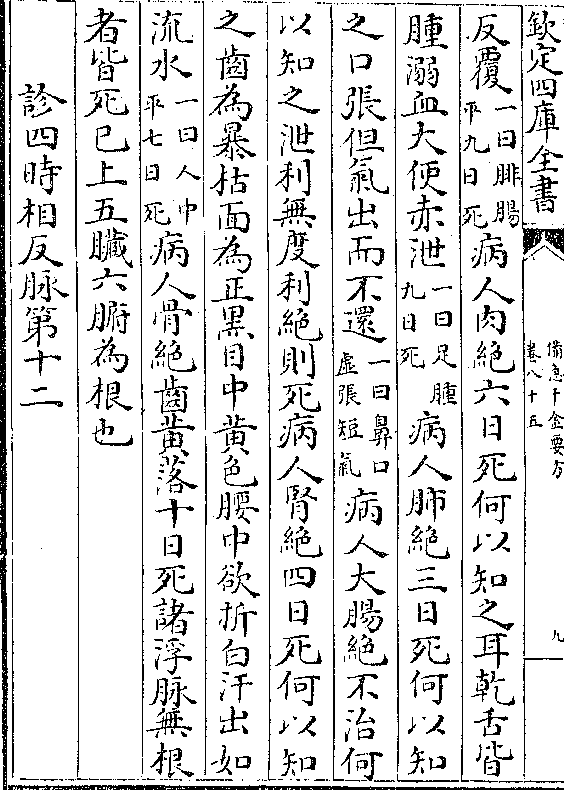 欽定四庫全書
備急千金要方
卷八十五
九
反覆一曰腓腸平九日死病人肉絕六日死何以知之耳乾舌皆
腫溺血大便赤泄一曰足腫九日死病人肺絕三日死何以知
之口張但氣出而不還一曰鼻口虛張短氣病人大腸絕不治何
以知之泄利無度利絕則死病人腎絕四日死何以知
之齒為暴枯面為正黑目中黃色腰中欲折白汗出如
流水一曰人中平七日死病人骨絕齒黃落十日死諸浮脉無根
者皆死已上五臟六腑為根也
診四時相反脉第十二